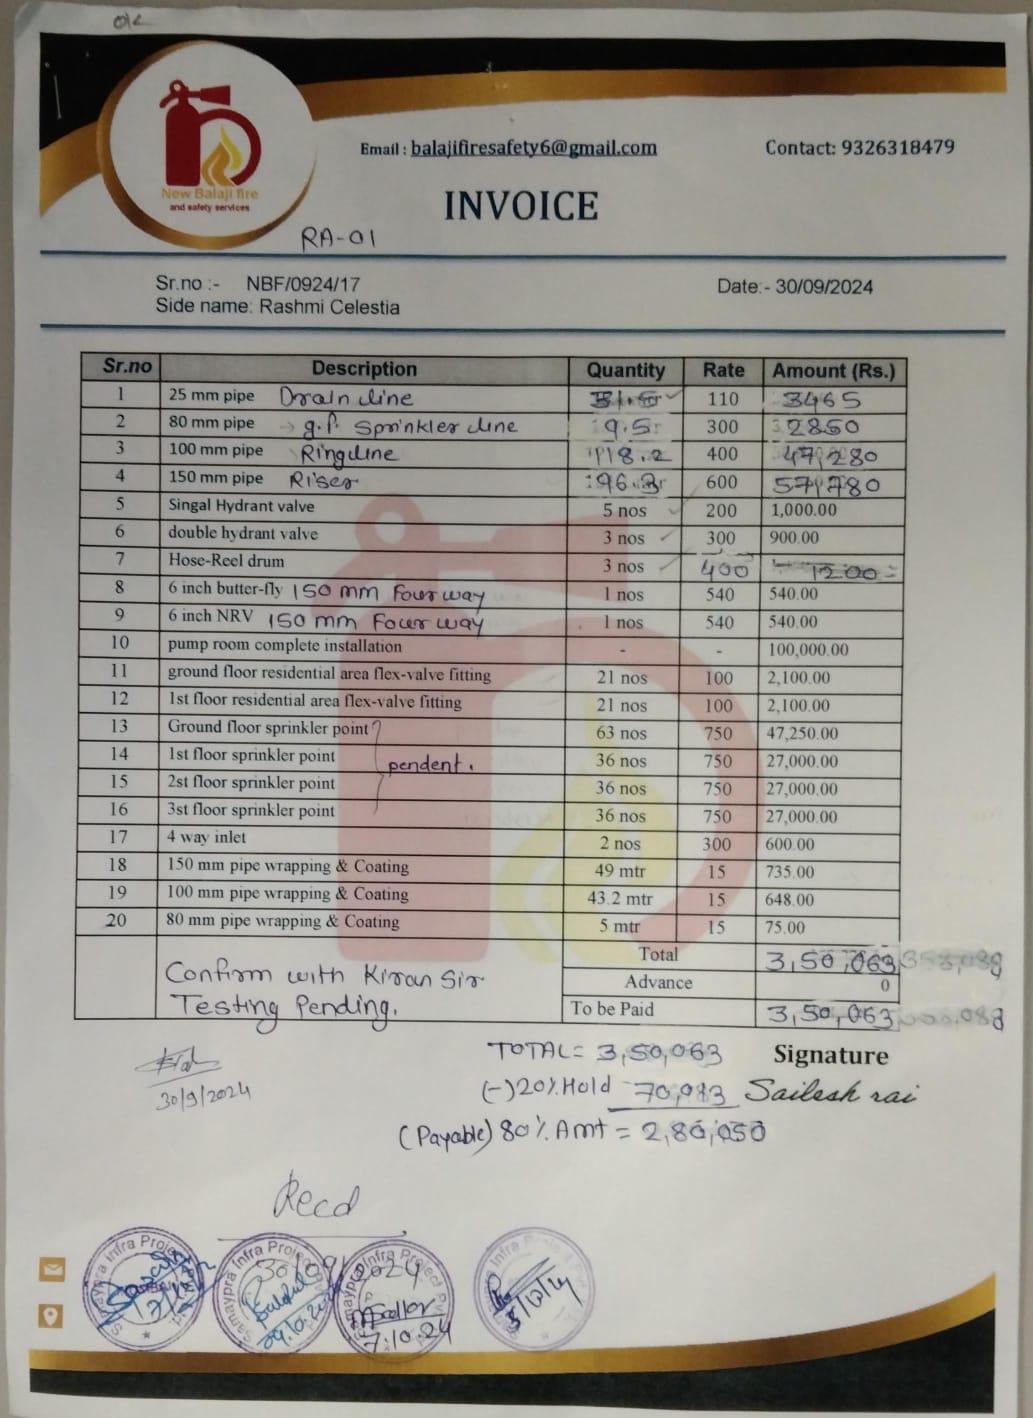 O/C
New Balaji fire
and safety services
Email : balajifiresafety6@gmail.com Contact: 9326318479
INVOICE
RA-01
Sr.no :- NBF/0924/17 Date:- 30/09/2024
Side name: Rashmi Celestia
Sr.no Description Quantity Rate Amount (Rs.)
1 25 mm pipe Drain line 31.5 110 3465
2 80 mm pipe → g.f. Sprinkler line 9.5 300 2850
3 100 mm pipe Ringline 118.2 400 47,280
4 150 mm pipe Riser 96.3 600 57,780
5 Singal Hydrant valve 5 nos 200 1,000.00
6 double hydrant valve 3 nos 300 900.00
7 Hose-Reel drum 3 nos 400 1200
8 6 inch butter-fly 150 mm Four way 1 nos 540 540.00
9 6 inch NRV 150 mm Four way 1 nos 540 540.00
10 pump room complete installation - - 100,000.00
11 ground floor residential area flex-valve fitting 21 nos 100 2,100.00
12 1st floor residential area flex-valve fitting 21 nos 100 2,100.00
13 Ground floor sprinkler point 63 nos 750 47,250.00
14 1st floor sprinkler point 36 nos 750 27,000.00
pendent.
15 2st floor sprinkler point 36 nos 750 27,000.00
16 3st floor sprinkler point 36 nos 750 27,000.00
17 4 way inlet 2 nos 300 600.00
18 150 mm pipe wrapping & Coating 49 mtr 15 735.00
19 100 mm pipe wrapping & Coating 43.2 mtr 15 648.00
20 80 mm pipe wrapping & Coating 5 mtr 15 75.00
Total 3,50,063
Confirm with Kiran Sir
Advance 0
Testing Pending.
To be Paid 3,50,063
TOTAL = 3,50,063 Signature
30/9/2024
(-) 20% Hold 70,013 Sailesh rai
(Payable) 80% Amt = 2,80,050
Recd
30/09/2024
Samaypra Infra Project
09.10.2024
7.10.24